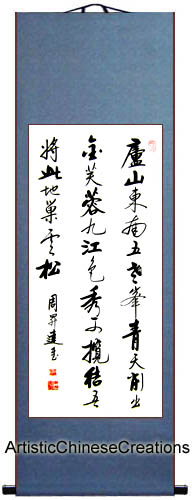 廬山東南五老峯青天削出
金芙蓉九江色秀可攬結吾
將此地巢雲松
周昇達
ArtisticChineseCreations